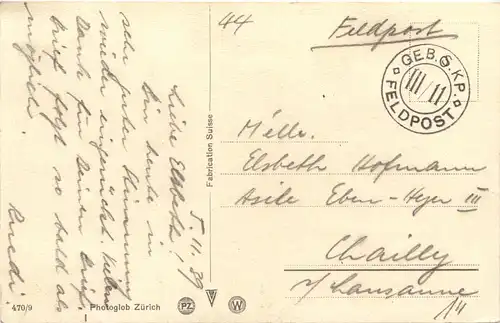 44
Feldpost
GEB.S.KP.
III/11
FELDPOST
5.11.39
Liebe Elsbeth!
Bin heute in
sehr guter Stimmung
wieder eingerückt. Vielen
Dank für Deinen Brief.
Brief folgt so bald als
möglich.
Ruedi
Fabrication Suisse
Melle.
Elsbeth Hofmann
Asile Eben-Hezer III
Chailly
s/Lausanne
14
470/9
Photoglob Zürich
PZ
W